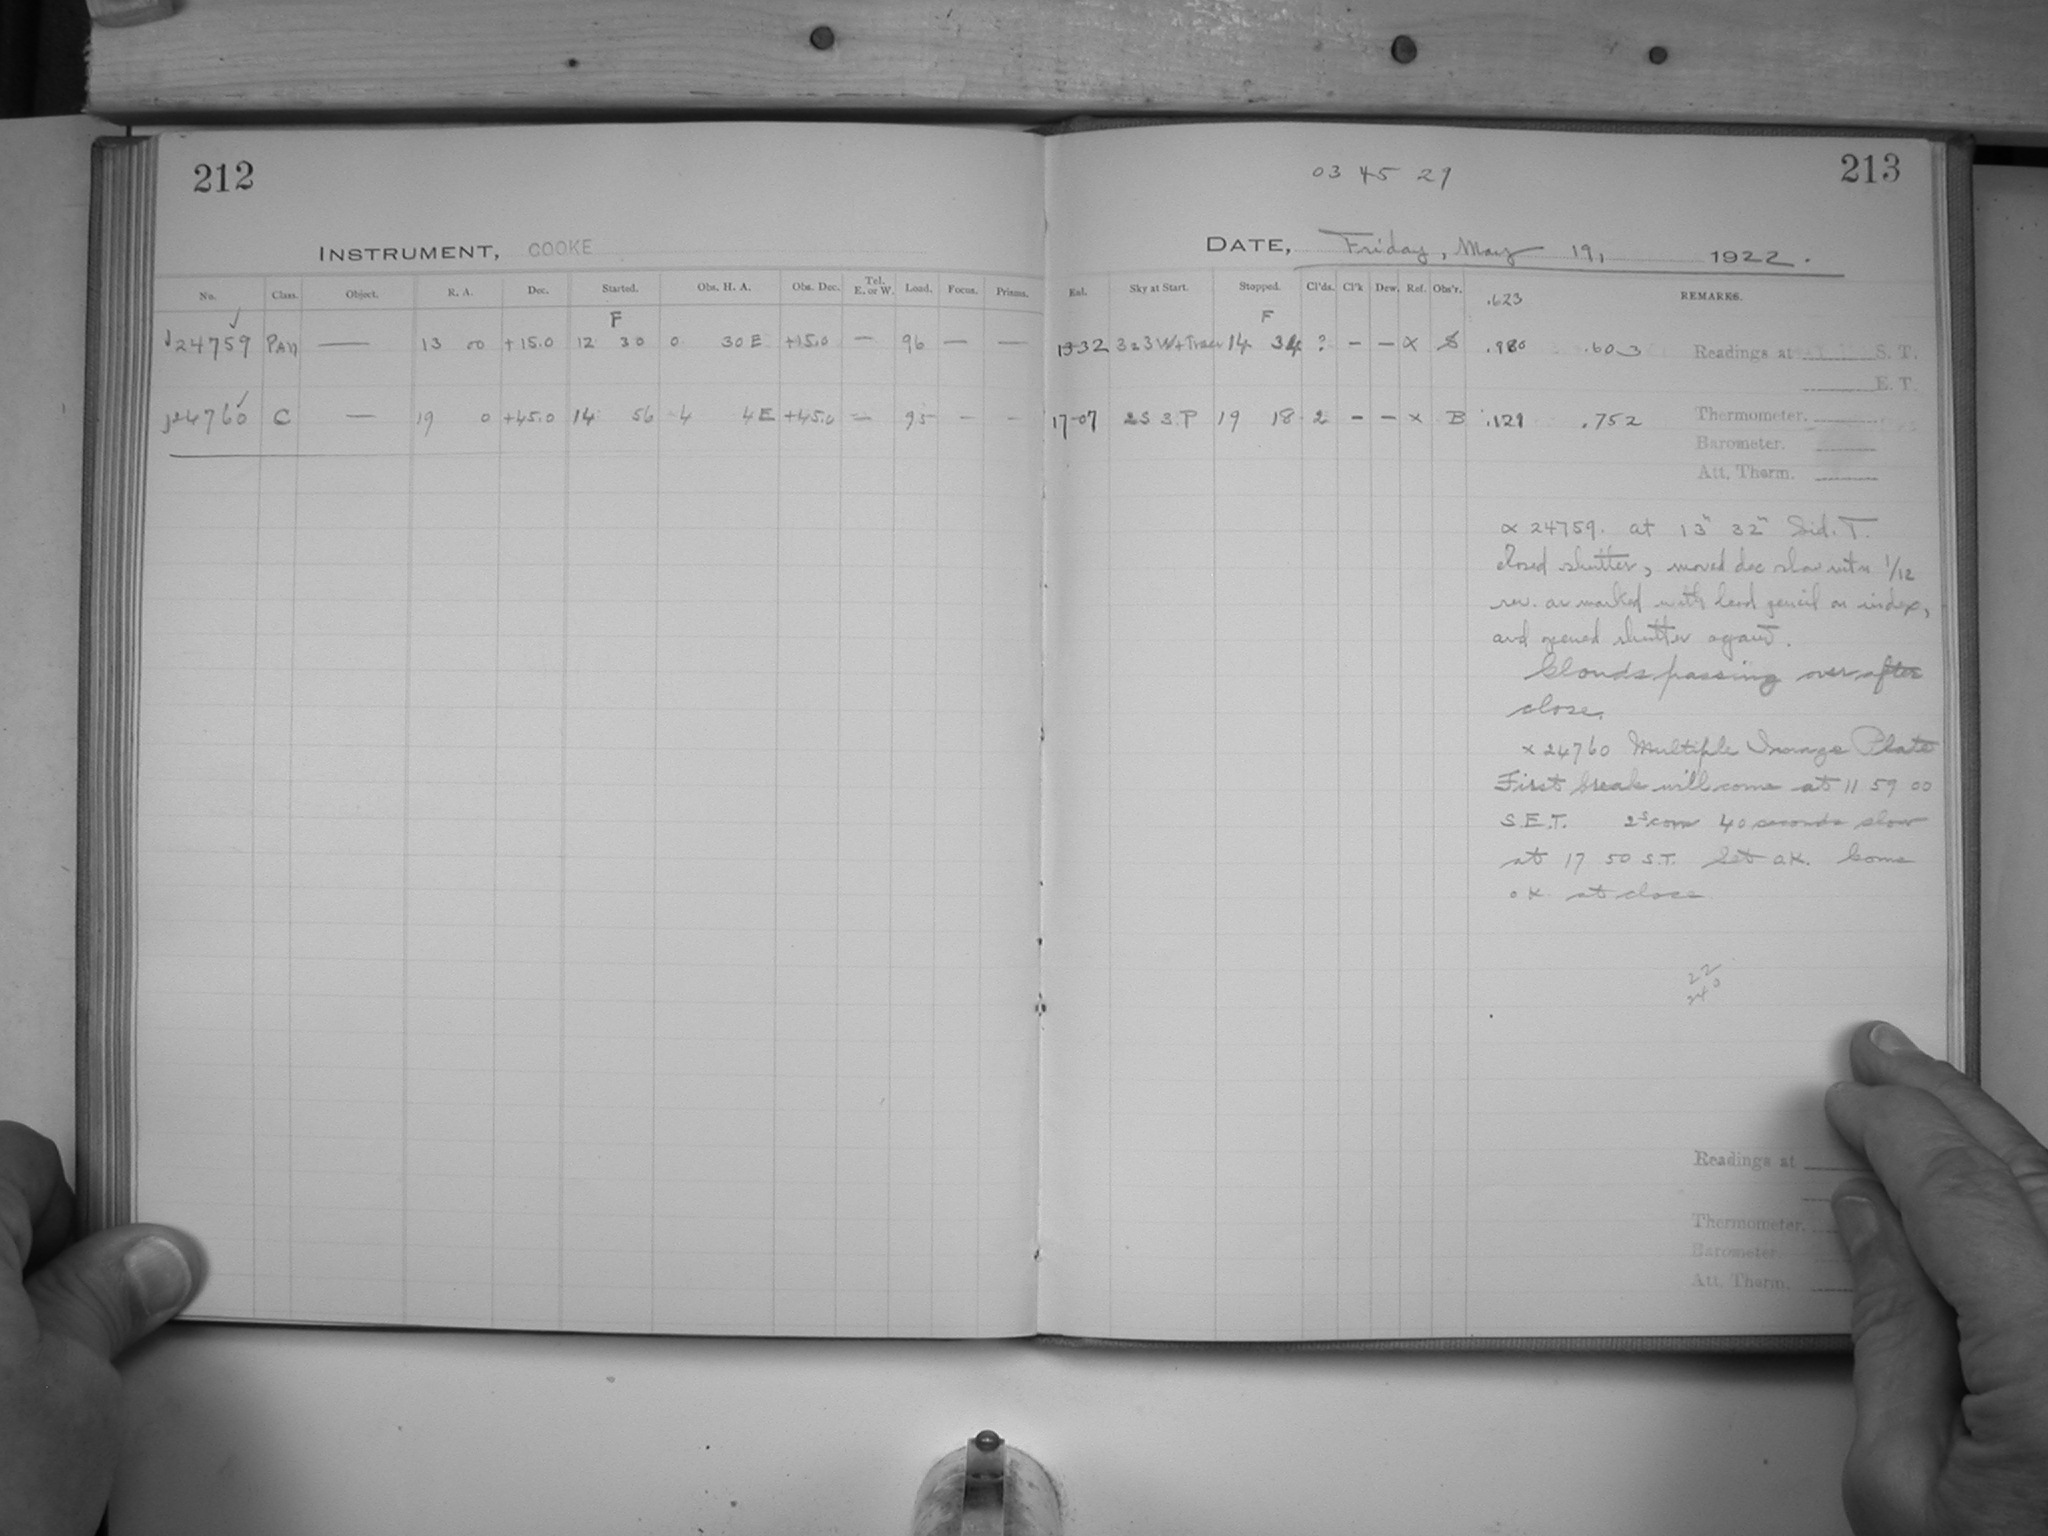 212
INSTRUMENT, COOKE
No. Class. Object. R. A. Dec. Started. Obs. H. A. Obs. Dec. Tel. E. or W. Load. Focus. Prisms.
F
24759 Pan — 13 00 +15.0 12 30 0 30 E +15.0 — 96 — —
24760 C — 19 0 +45.0 14 56 4 4 E +45.0 — 95 — -
213
03 45 29
DATE, Friday, May 19, 1922.
Sky at Start. Stopped. Cl'ds. Cl'k Dew. Ref. Obs'r. .623 REMARKS.
F
13-32 14 34 ? - - x S .980 .603
Readings at S. T.
E. T.
17-07 2S 3 P 19 18 2 - - x B .129 .752
Thermometer.
Barometer.
Att. Therm.
x 24759. at 13h 32m Sid. T.
closed shutter, moved dec slow motn 1/12
rev. as marked with lead pencil on index,
and opened shutter again.
Clouds passing over after
close.
x 24760 Multiple Image Plate
First break will come at 11 59 00
S.E.T. 40 seconds slow
at 17 50 S.T. Set OK. Goms
OK at close
22
240
Readings at
Thermometer.
Barometer.
Att. Therm.